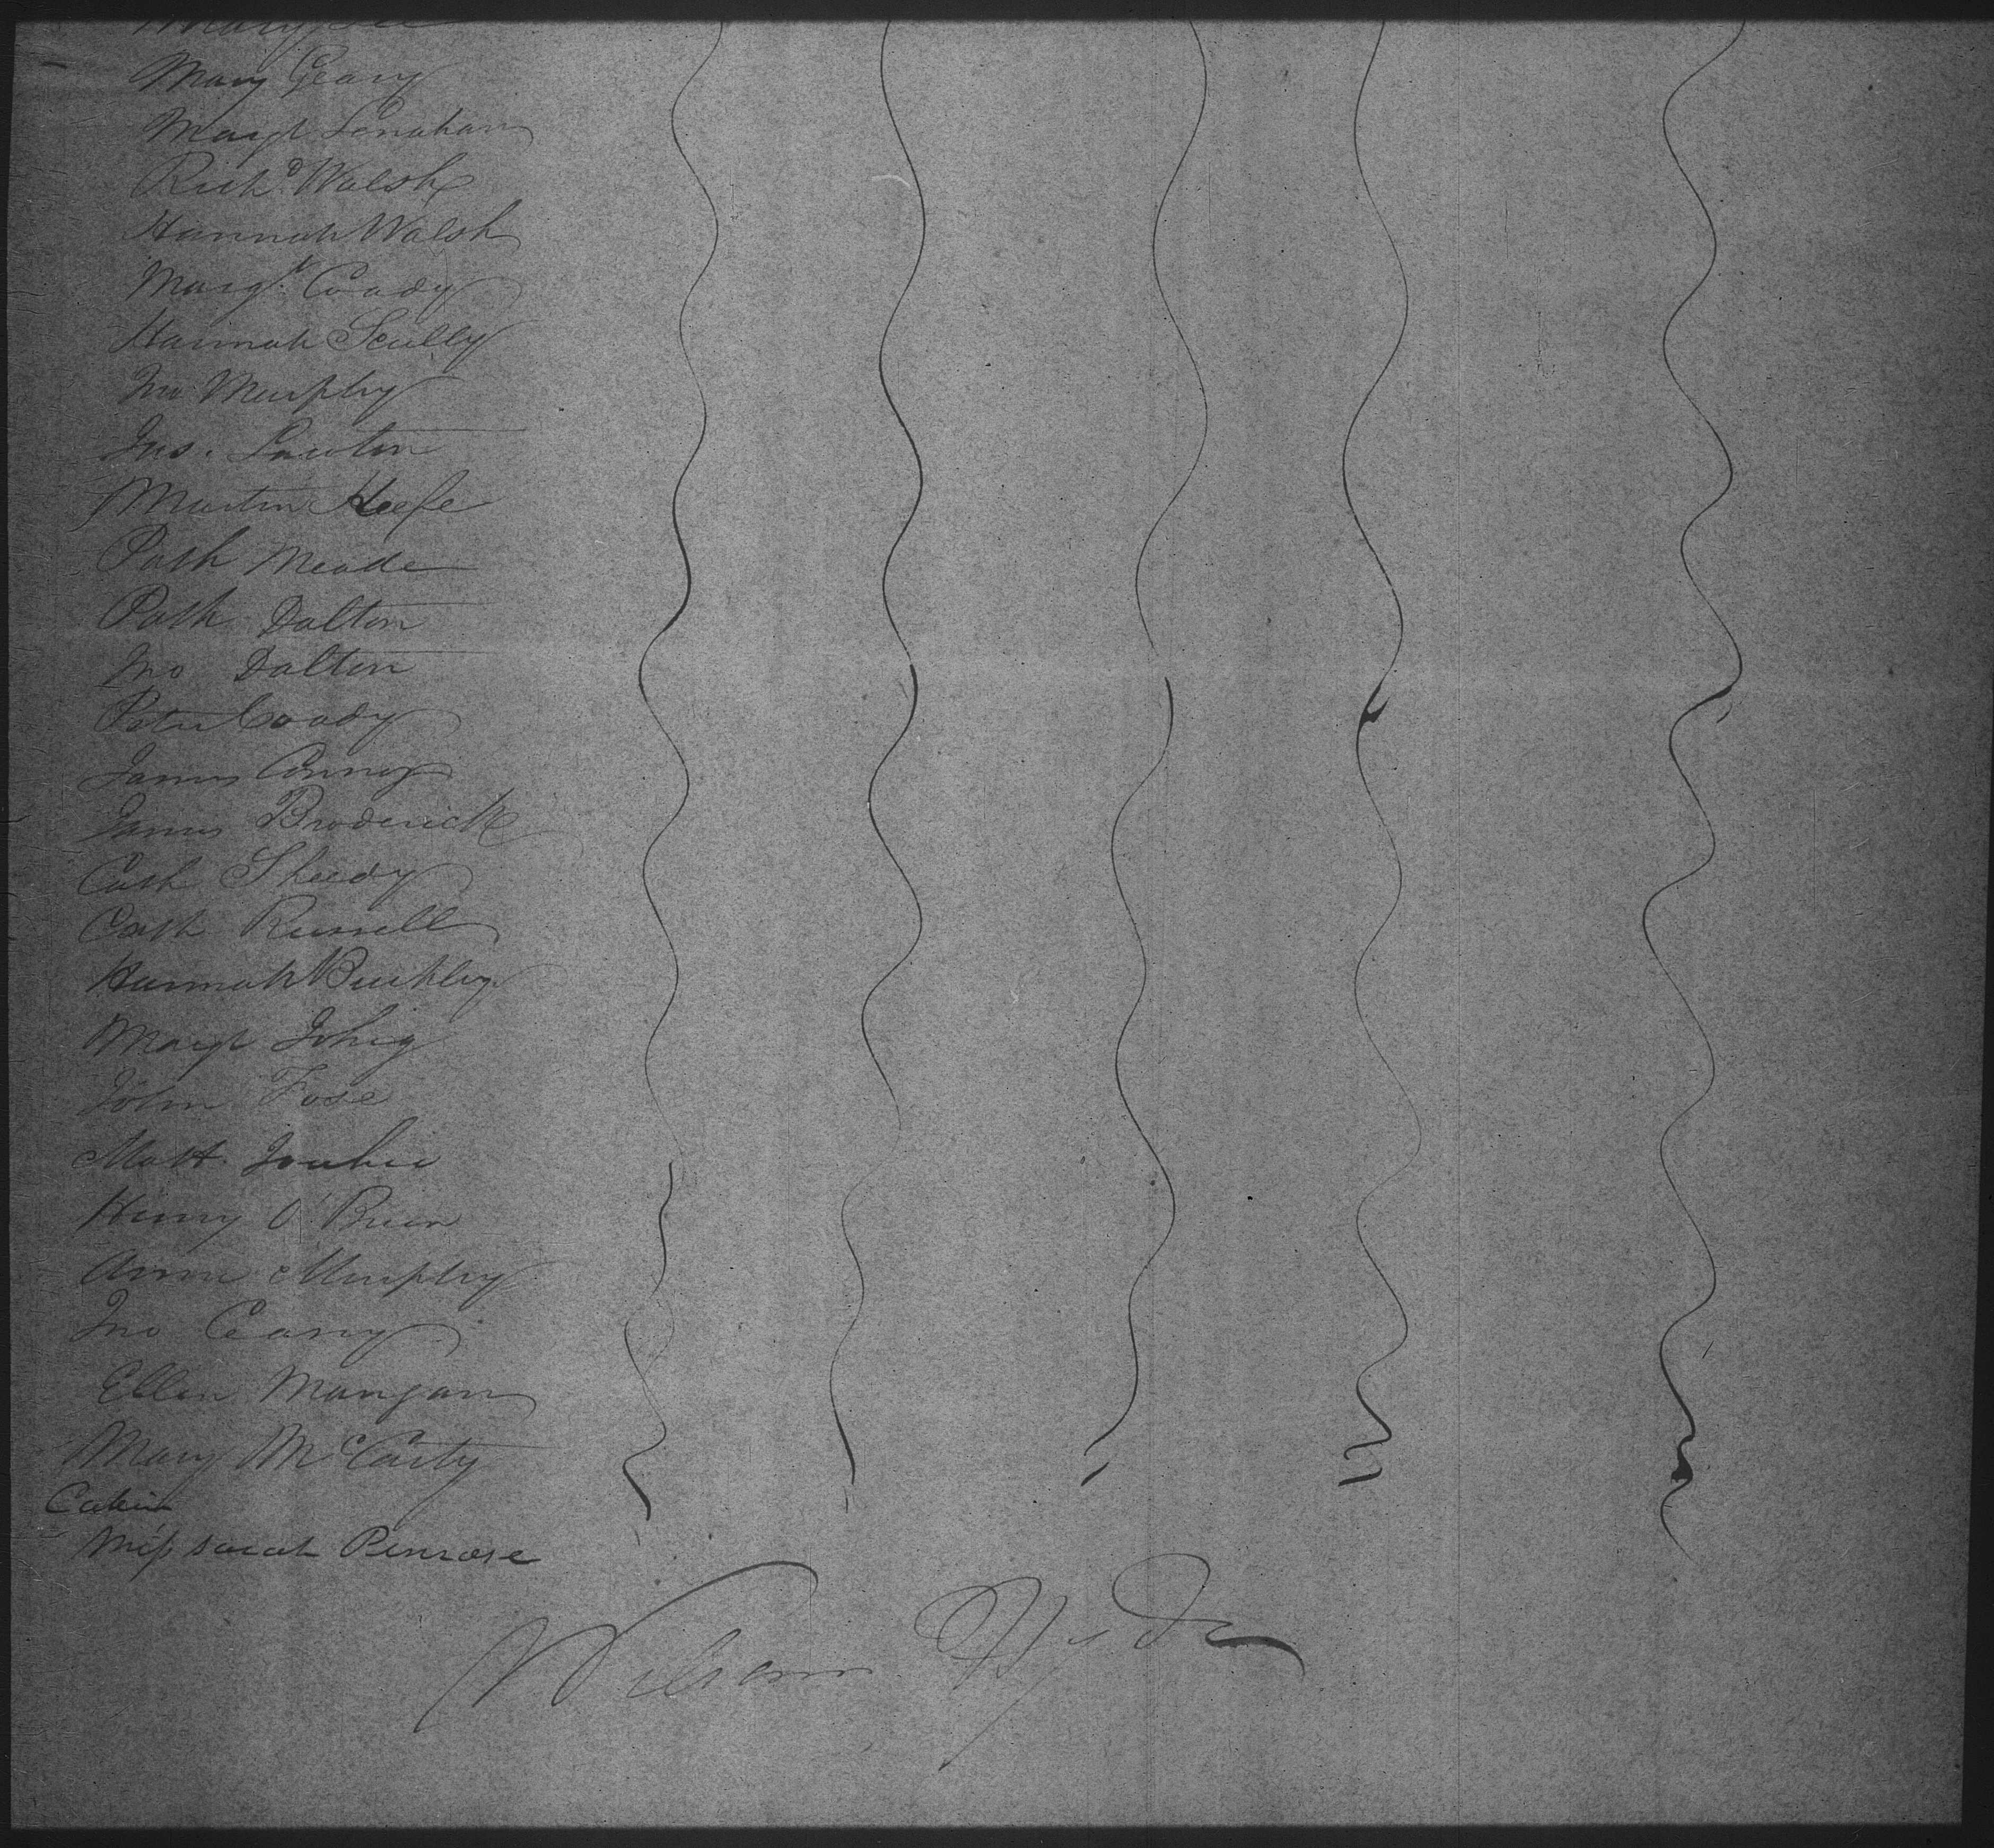 Mary
Mary Geary
Margt Lenahan
Richd Walsh
Hannah Walsh
Margt Coady
Hannah Scully
Jno Murphy
Jas. Lawton
Martin Keefe
Patk Meade
Patk Dalton
Jno Dalton
Peter Coady
James Connor
James Broderick
Cath Sheedy
Cath Russell
Hannah Buckley
Margt
John Fose
Matt
Henry O'Brien
Anne Murphy
Jno Geary
Ellen Mangan
Mary McCarty
Cabin
Miss Sarah Penrose
Wilson